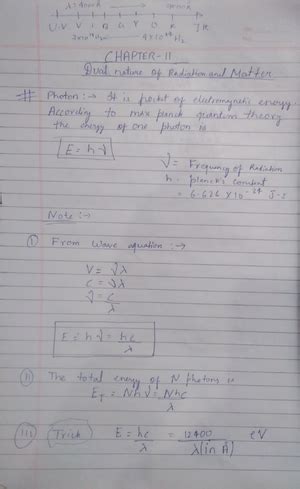 λ→4000Å 8000Å
U.V V I B G Y O R I.R
4×10¹⁴ Hz
CHAPTER-11
Dual nature of Radiation and Matter
# Photon :→ It is packet of electromagnetic energy.
According to max planck quantum theory
the energy of one photon is
E = hν
ν = Frequency of Radiation
h = planck's constant
= 6.626 × 10⁻³⁴ J-s
Note :→
(i) From wave equation :→
V = νλ
C = νλ
ν = C/λ
E = hν = hc/λ
(ii) The total energy of N photons is
E_T = Nhν = Nhc/λ
(iii) Trick E = hc/λ = 12400/λ(in Å) eV